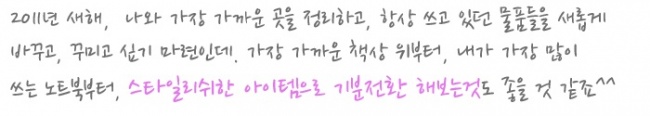 2011년 새해, 나와 가장 가까운 곳을 정리하고, 항상 쓰고 있던 물품들을 새롭게
바꾸고, 꾸미고 싶기 마련인데. 가장 가까운 책상 위부터, 내가 가장 많이
쓰는 노트북부터, 스타일리쉬한 아이템으로 기분전환 해보는것도 좋을 것 같죠^^